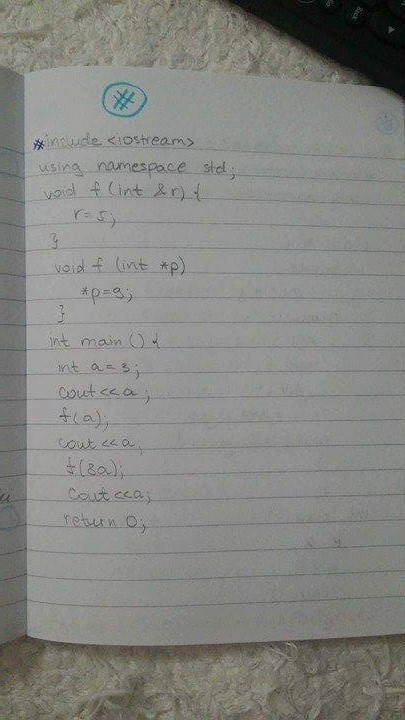 #
#include <iostream>
using namespace std;
void f (int &r) {
r=5;
}
void f (int *p)
*p=9;
}
int main () {
int a=3;
cout<<a;
f(a);
cout<<a;
f(&a);
cout<<a;
return 0;